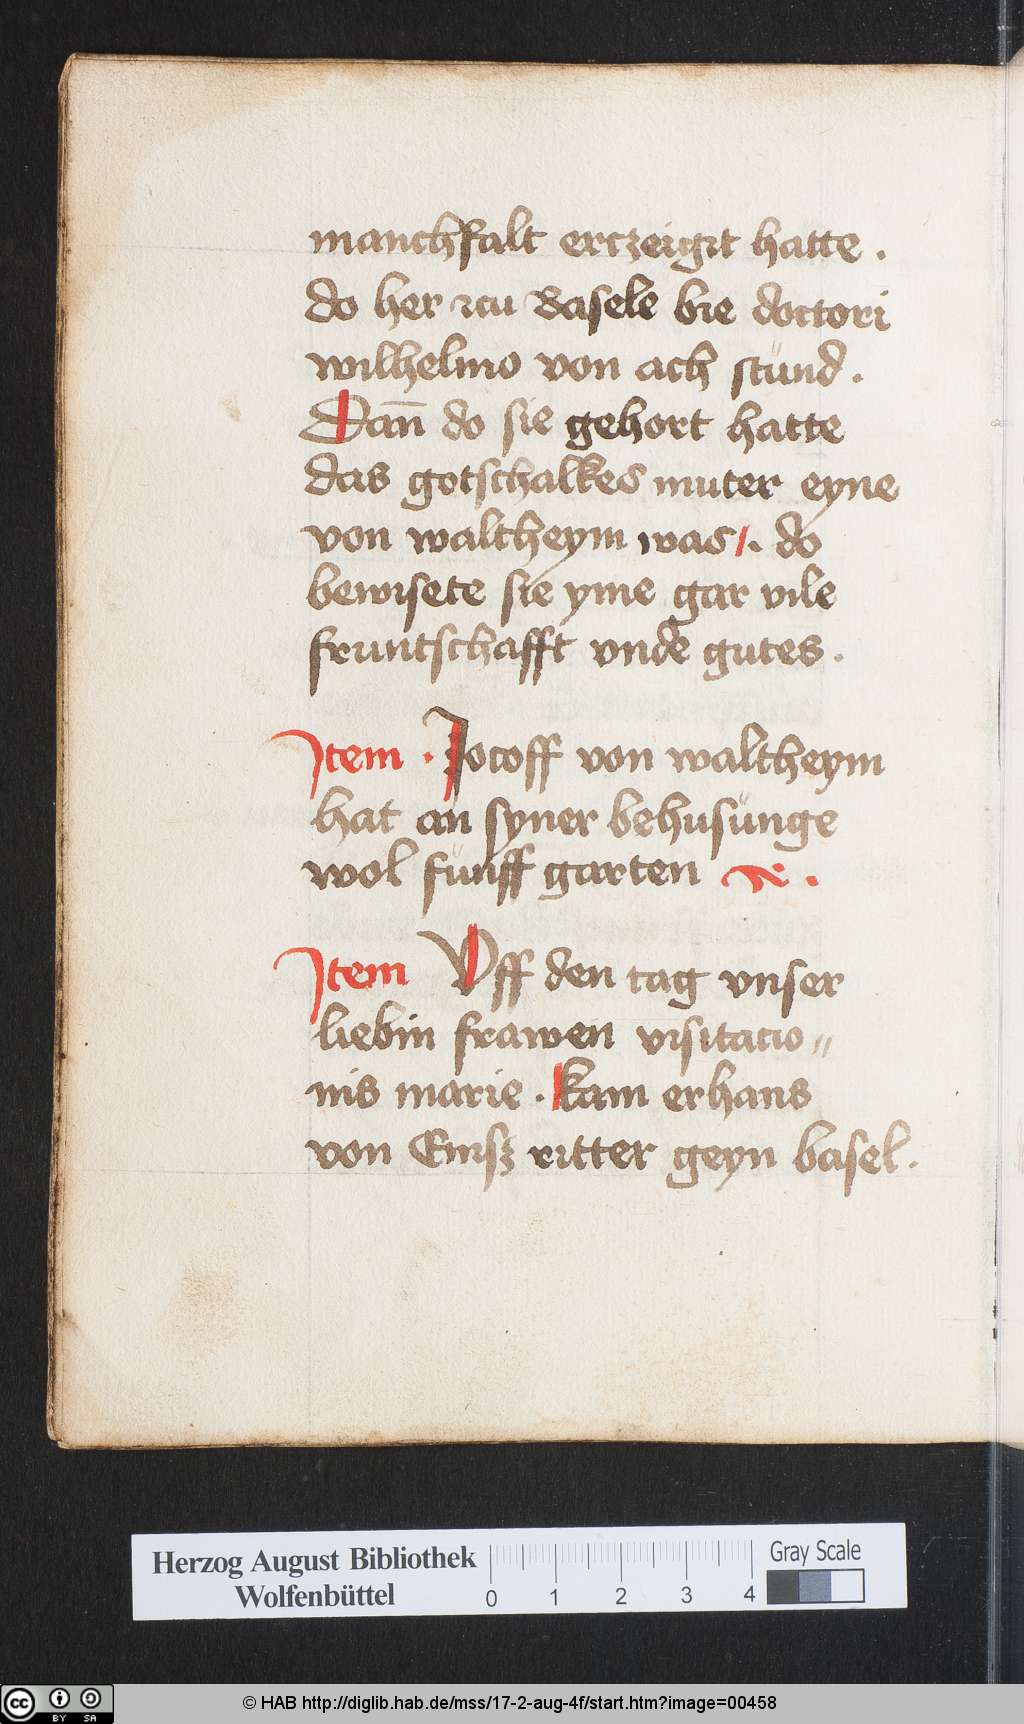 manchfalt ertzeigit hatte .
do her zcu Basele bie doctori
wilhelmo von ach stůnd .
Dan̄ do sie gehort hatte
das gotschalkes muter eyne
von waltheym was/. do
bewisete sie yme gar vile
fruntschafft vnde gutes .
Item . Jocoff von waltheym
hat an syner behusůnge
wol fůnff garten ꝛc .
Item Vff den tag vnser
liebin frawen visitacio⸗
nis marie . kam erhans
von Emsz ritter geyn basel .
Herzog August Bibliothek
Wolfenbüttel
0 1 2 3 4
Gray Scale
cc BY SA
© HAB http://diglib.hab.de/mss/17-2-aug-4f/start.htm?image=00458